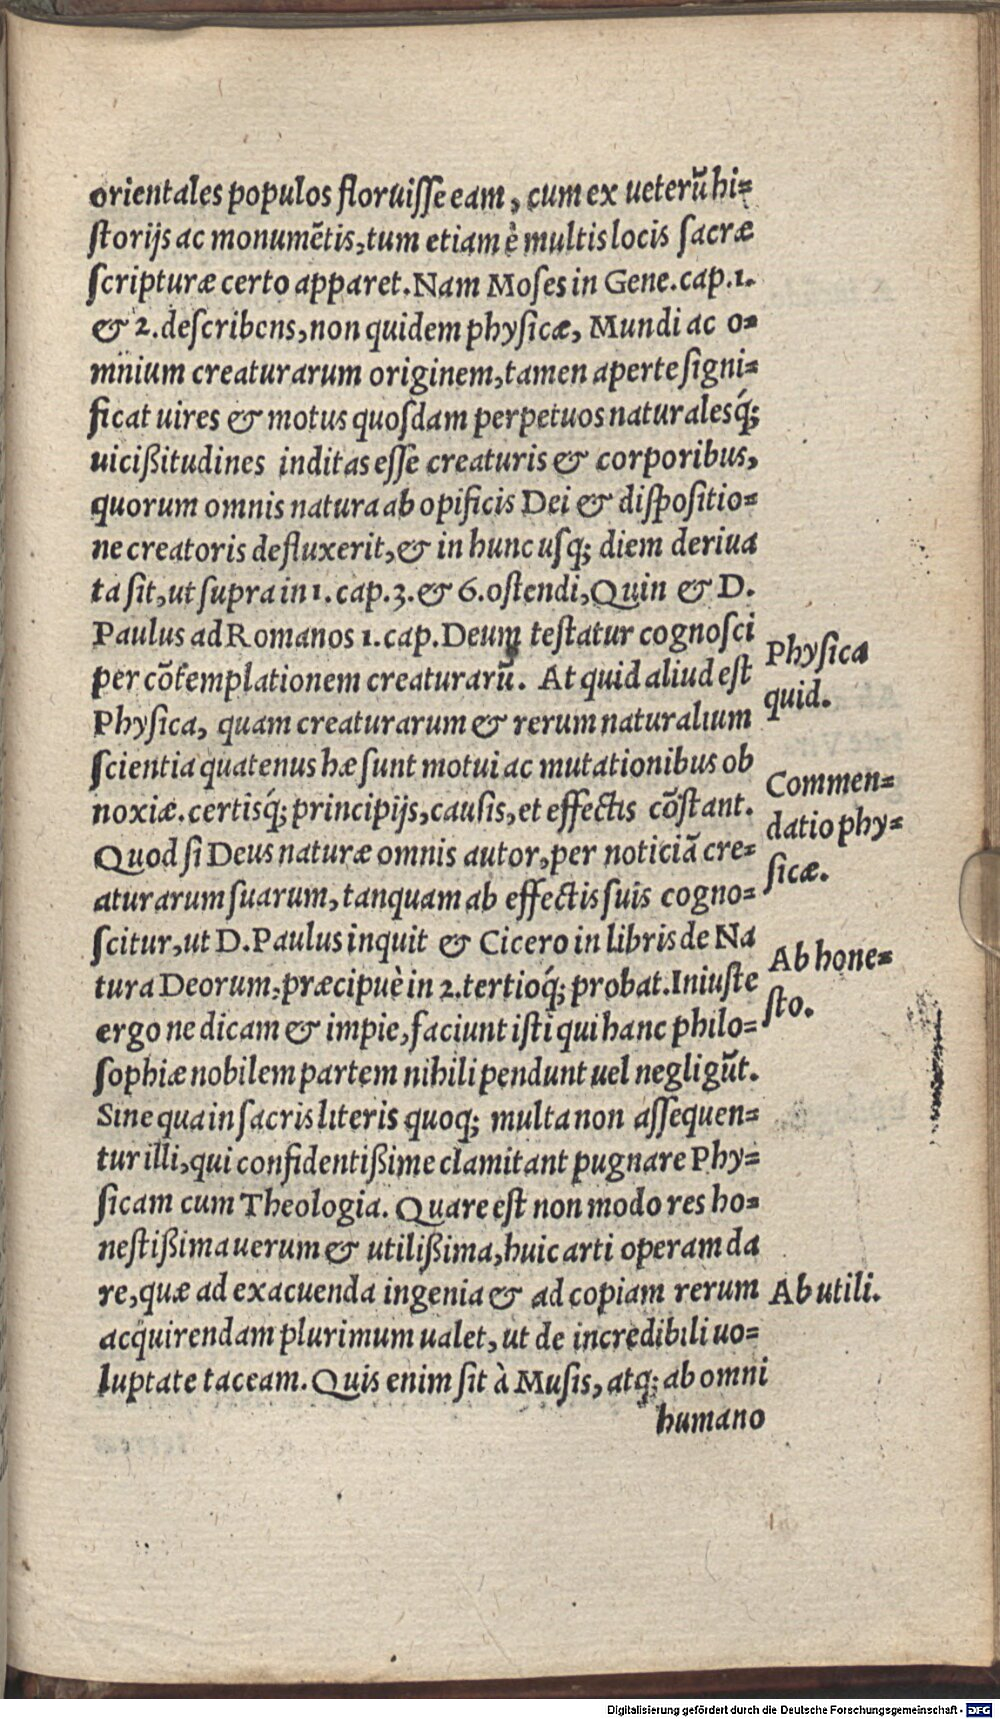 orientales populos floruiſſe eam, cum ex ueterũ hi=
ſtorijs ac monumẽtis, tum etiam è multis locis ſacræ
ſcripturæ certo apparet. Nam Moſes in Gene. cap. 1.
& 2. deſcribens, non quidem phyſicæ, Mundi ac o=
mnium creaturarum originem, tamen aperte ſigni=
ficat uires & motus quoſdam perpetuos naturalesq́;
uicißitudines inditas eſſe creaturis & corporibus,
quorum omnis natura ab opificis Dei & diſpoſitio=
ne creatoris defluxerit, & in hunc uſq; diem deriua
ta ſit, ut ſupra in 1. cap. 3. & 6. oſtendi, Quin & D.
Paulus ad Romanos 1. cap. Deum teſtatur cognoſci
per cõtemplationem creaturarũ. At quid aliud eſt
Phyſica, quam creaturarum & rerum naturalium
ſcientia quatenus hæ ſunt motui ac mutationibus ob
noxiæ. certisq́; principijs, cauſis, et effectis cõſtant.
Quod ſi Deus naturæ omnis autor, per noticiã cre=
aturarum ſuarum, tanquam ab effectis ſuis cogno=
ſcitur, ut D. Paulus inquit & Cicero in libris de Na
tura Deorum, præcipuè in 2. tertioq́; probat. Iniuſte
ergo ne dicam & impie, faciunt iſti qui hanc philo=
ſophiæ nobilem partem nihili pendunt uel negligũt.
Sine qua in ſacris literis quoq; multa non aſſequen=
tur illi, qui confidentißime clamitant pugnare Phy=
ſicam cum Theologia. Quare eſt non modo res ho=
neſtißima uerum & utilißima, huic arti operam da
re, quæ ad exacuenda ingenia & ad copiam rerum
acquirendam plurimum ualet, ut de incredibili uo=
luptate taceam. Quis enim ſit à Muſis, atq; ab omni
humano
Phyſica
quid.
Commen=
datio phy=
ſicæ.
Ab hone=
ſto.
Ab utili.
Digitalisierung gefördert durch die Deutsche Forschungsgemeinschaft - DFG